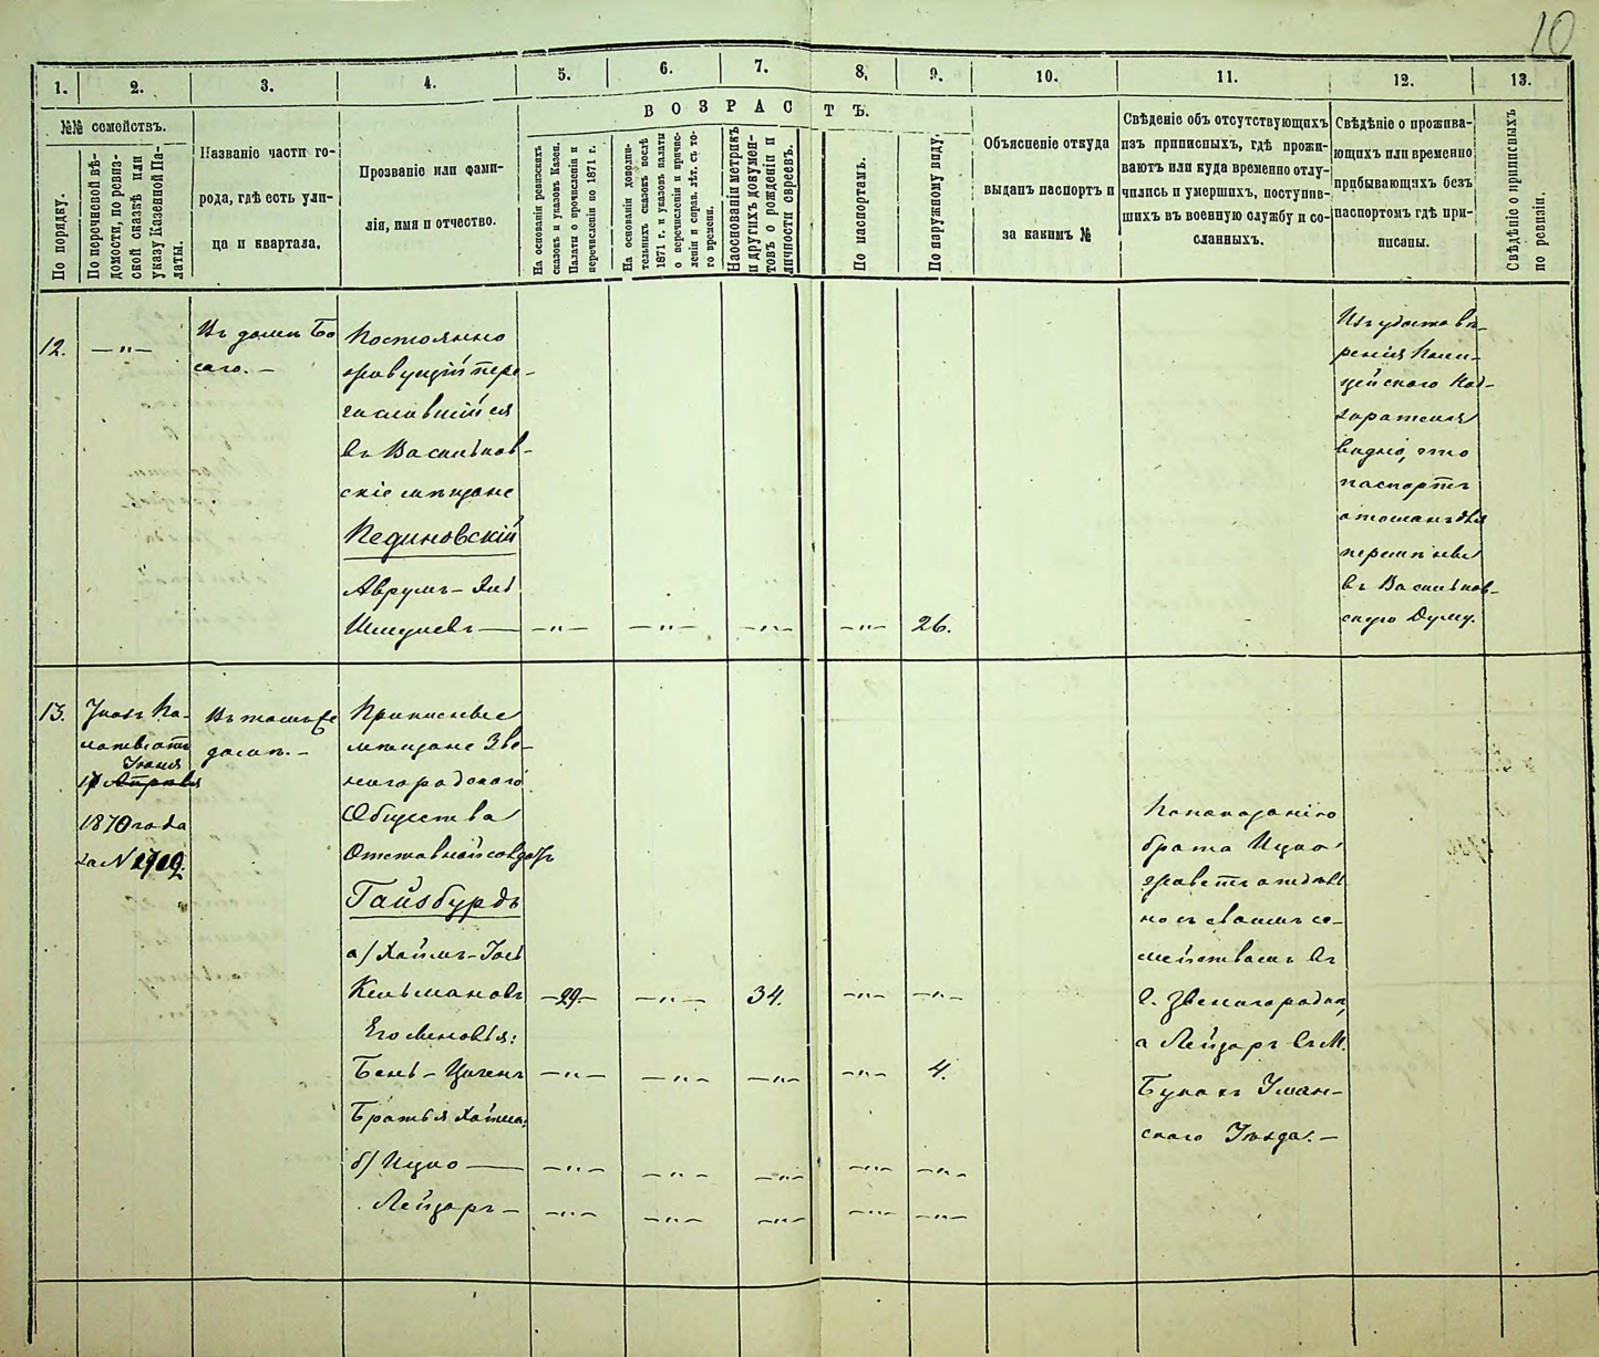 10
1. 2. 3. 4. 5. 6. 7. 8. 9. 10. 11. 12. 13.
ВОЗРАСТЪ.
№№ семействъ.
По порядку.
По перечневой вѣ-
домости, по ревиз-
ской сказкѣ или
указу Казенной Па-
латы.
Названіе части го-
рода, гдѣ есть ули-
ца и квартала.
Прозваніе или фами-
лія, имя и отчество.
На основаніи ревизскихъ
сказокъ и указовъ Казен.
Палаты о причисленіи и
перечисленіи по 1871 г.
На основаніи дополни-
тельныхъ сказокъ послѣ
1871 г. и указовъ палаты
о перечисленіи и причис-
леніи и справ. лѣт. съ то-
го времени.
На основаніи метрикъ
и другихъ докумен-
товъ о рожденіи и
личности евреевъ.
По паспортамъ.
По наружному виду.
Объясненіе откуда
выданъ паспортъ и
за какимъ №
Свѣденіе объ отсутствующихъ
изъ приписныхъ, гдѣ прожи-
ваютъ или куда временно отлу-
чились и умершихъ, поступив-
шихъ въ военную службу и со-
сланныхъ.
Свѣдѣніе о прожива-
ющихъ или временно
прибывающихъ безъ
паспортомъ гдѣ при-
писаны.
Свѣдѣніе о приписныхъ
по ревизіи.
12.
—"—
Въ домѣ Бо
саго.—
Постоянно
живущій пере-
числившійся
въ Васильков-
скіе мѣщане
Пединовскій
Аврумъ-Эль
Шмулевъ —
—"— —"— —"— —"— 26.
Изъ удостовѣ-
ренія Поли-
цейскаго Над-
зирателя
видно, что
паспортъ
отосланъ для
перемѣны
въ Васильков-
скую Думу.
13.
Указъ Па-
латы отъ
Іюня
17 Апрѣля
1870 года
за N 2709.
Въ томъ же
домѣ.—
Приписные
мѣщане Зве-
нигородскаго
Общества
Отставной солдатъ
Гайсбурдъ
а) Хаимъ-Іось
Кельмановъ —29.— —"— 34. —"— —"—
Его сыновья:
Бень-Ционъ —"— —"— —"— —"— 4.
Братья Хаима:
б) Ицко — —"— —"— —"— —"— —"—
Лейзоръ — —"— —"— —"— —"— —"—
По показанію
брата Ицко
живетъ отдѣль
но съ своимъ се-
мействомъ въ
г. Звенигородкѣ,
а Лейзоръ въ М.
Букахъ Уман-
скаго Уѣзда.—